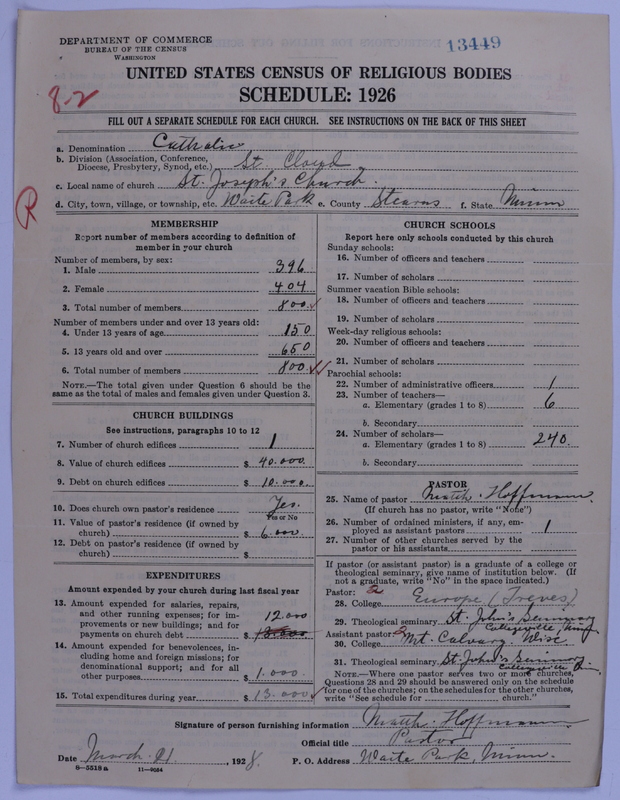 DEPARTMENT OF COMMERCE
BUREAU OF THE CENSUS
WASHINGTON
13449
8-2
UNITED STATES CENSUS OF RELIGIOUS BODIES
SCHEDULE: 1926
FILL OUT A SEPARATE SCHEDULE FOR EACH CHURCH. SEE INSTRUCTIONS ON THE BACK OF THIS SHEET
a. Denomination Catholic
b. Division (Association, Conference, Diocese, Presbytery, Synod, etc.) St. Cloud
c. Local name of church St. Joseph's Church.
d. City, town, village, or township, etc. Waite Park e. County Stearns f. State Minn
R
MEMBERSHIP
Report number of members according to definition of
member in your church
Number of members, by sex:
1. Male 396
2. Female 404
3. Total number of members 800
Number of members under and over 13 years old:
4. Under 13 years of age 150
5. 13 years old and over 650
6. Total number of members 800
NOTE.—The total given under Question 6 should be the
same as the total of males and females given under Question 3.
CHURCH BUILDINGS
See instructions, paragraphs 10 to 12
7. Number of church edifices 1
8. Value of church edifices $ 40.000
9. Debt on church edifices $ 10.000
10. Does church own pastor's residence Yes.
Yes or No
11. Value of pastor's residence (if owned by
church) $ 6.000
12. Debt on pastor's residence (if owned by
church) $
EXPENDITURES
Amount expended by your church during last fiscal year
13. Amount expended for salaries, repairs,
and other running expenses; for im-
provements or new buildings; and for 12.000
payments on church debt $ 13.000
14. Amount expended for benevolences, in-
cluding home and foreign missions; for
denominational support; and for all
other purposes $ 1.000
15. Total expenditures during year $ 13.000
CHURCH SCHOOLS
Report here only schools conducted by this church
Sunday schools:
16. Number of officers and teachers
17. Number of scholars
Summer vacation Bible schools:
18. Number of officers and teachers
19. Number of scholars
Week-day religious schools:
20. Number of officers and teachers
21. Number of scholars
Parochial schools:
22. Number of administrative officers 1
23. Number of teachers—
a. Elementary (grades 1 to 8) 6
b. Secondary
24. Number of scholars—
a. Elementary (grades 1 to 8) 240
b. Secondary
PASTOR
25. Name of pastor Matth. Hoffmann.
(If church has no pastor, write "None")
26. Number of ordained ministers, if any, em-
ployed as assistant pastors 1
27. Number of other churches served by the
pastor or his assistants
If pastor (or assistant pastor) is a graduate of a college or
theological seminary, give name of institution below. (If
not a graduate, write "No" in the space indicated.)
Pastor:
28. College Europe (Treves)
29. Theological seminary St. John's Seminary
Collegeville, Minn
Assistant pastor:
30. College Mt. Calvary. Wisc
31. Theological seminary St. John's Seminary
Collegeville
NOTE.—Where one pastor serves two or more churches,
Questions 28 and 29 should be answered only on the schedule
for one of the churches; on the schedules for the other churches,
write "See schedule for church."
Signature of person furnishing information Matth. Hoffmann
Official title Pastor
Date March 21., 1928. P. O. Address Waite Park, Minn.
8—5518a 11—9064